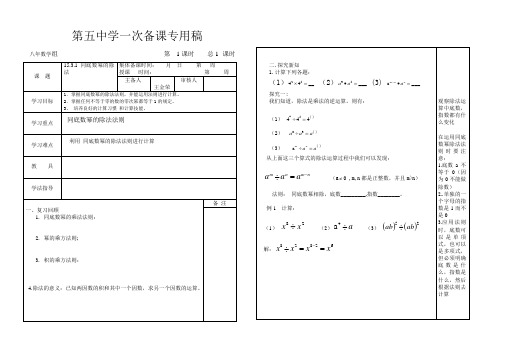 第五中学一次备课专用稿
八年数学组 第 1课时 总1 课时
课 题
15.3.1 同底数幂的除法
集体备课时间： 月 日 第 周
授课 时间： 第 周
主备人
审核人
王金翠
学习目标
1、掌握同底数幂的除法法则，并能运用法则进行计算。
2、掌握任何不等于零的数的零次幂都等于1的规定。
3、培养良好的计算习惯 和计算技能。
学习重点
同底数幂的除法法则
学习难点
利用 同底数幂的除法法则进行计算
教 具
学法指导
备 注
一、复习回顾
1. 同底数幂的乘法法则：
2. 幂的乘方法则；
3. 积的乘方法则；
4.除法的意义：已知两因数的积和其中一个因数，求另一个因数的运算。
二.探究新知
1.计算下列各题：
探究一：
我们知道，除法是乘法的逆运算，则有：
从上面这三个算式的除法运算过程中我们可以发现：
aᵐ÷aⁿ=aᵐ⁻ⁿ （a≠0，m,n都是正整数，并且m>n）
法则： 同底数幂相除，底数________,指数_______.
例1 计算：
（1） x⁸÷x² （2）a⁴÷a （3） (ab)⁵÷(ab)²
解：x⁸÷x²=x⁸⁻²=x⁶
观察除法运算中底数、指数都有什么变化
在运用同底数幂除法法则时要注意：
1.底数a不等于0（因为0不能做除数）
2.单独的一个字母的指数是1而不是0
3.应用法则时，底数可以是单项式，也可以是多项式，但必须明确底数是什么，指数是什么，然后根据法则去计算